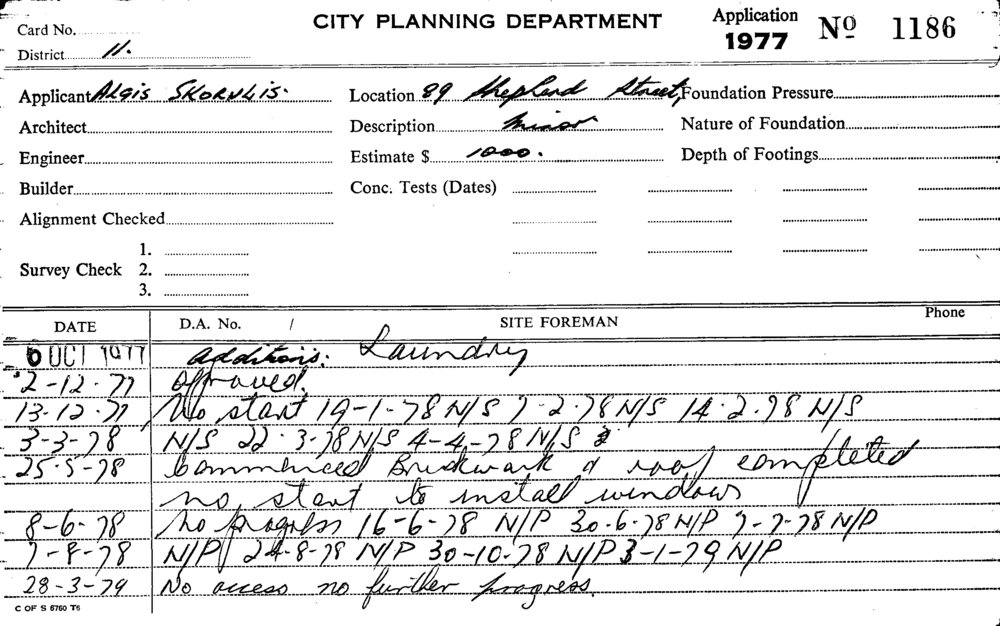 Card No.
CITY PLANNING DEPARTMENT
Application 1977 No 1186
District 11.
Applicant Algis Skorulis. Location 89 Shepherd Street, Foundation Pressure
Architect Description Minor Nature of Foundation
Engineer Estimate $ 1000. Depth of Footings
Builder Conc. Tests (Dates)
Alignment Checked
1.
Survey Check 2.
3.
DATE D.A. No. / SITE FOREMAN Phone
6 OCT 1977 Additions: Laundry
2-12-77 Approved.
13.12.77 No start 19-1-78 N/S 7-2.78 N/S 14.2.78 N/S
3-3-78 N/S 22.3-78 N/S 4-4-78 N/S
25.5-78 Commenced Brickwork & roof completed
no start to install windows
8-6-78 No progress 16-6-78 N/P 30-6-78 N/P 7-7-78 N/P
7-8-78 N/P 24-8-78 N/P 30-10-78 N/P 3-1-79 N/P
28-3-79 No access no further progress.
C OF S 6760 T6